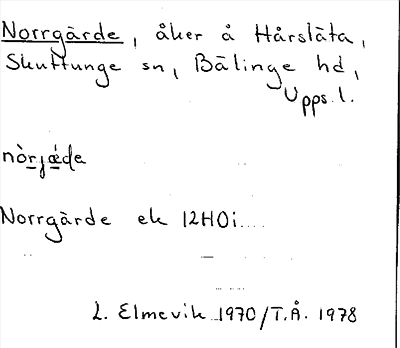 Norrgärde, åker å Hårsläta,
Skuttunge sn, Bälinge hd,
Upps. l.
nòrjǽde
Norrgärde ek 12H0i
L. Elmevik 1970/T.Å. 1978